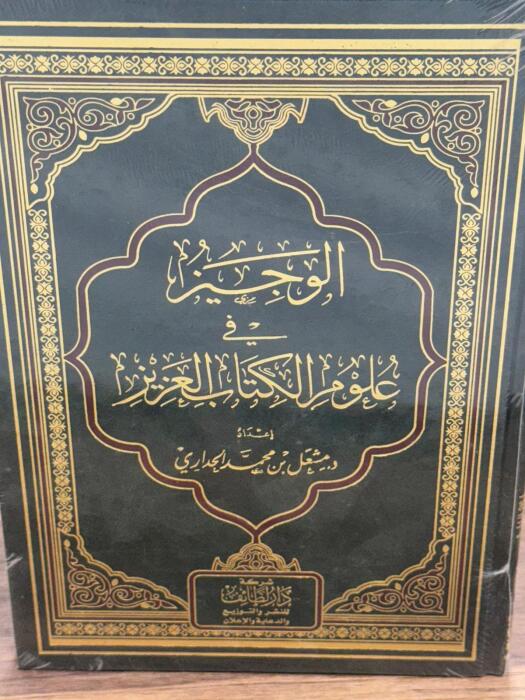 الوجيز
في
علوم الكتاب العزيز
إعداد
د. مشعل بن محمد الحداري
شركة
دار لطائف
للنشر والتوزيع
والدعاية والإعلان